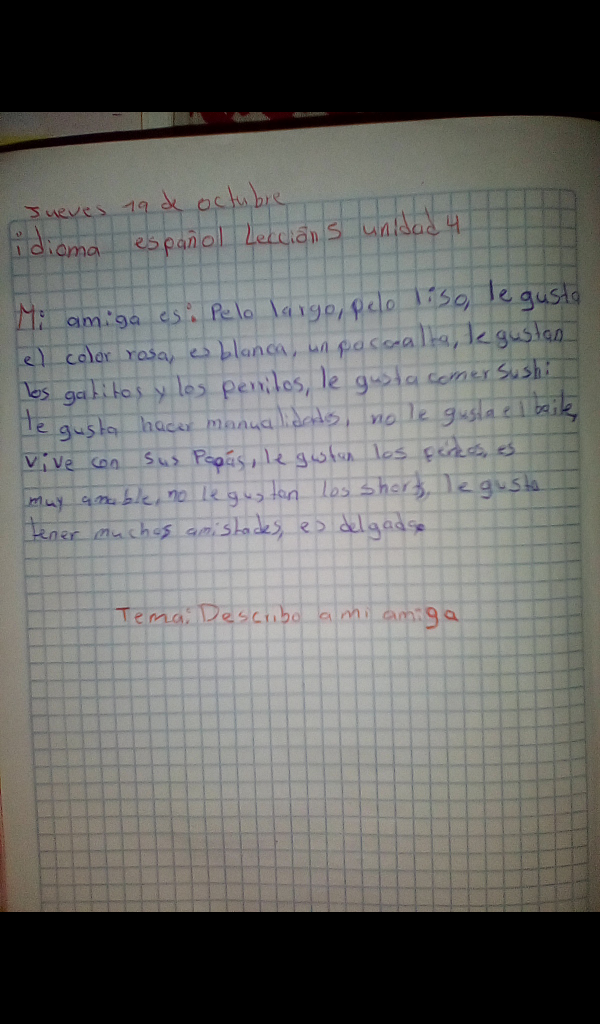 Jueves 19 de octubre
idioma español Lección 5 unidad 4
Mi amiga es: Pelo largo, pelo liso, le gusta
el color rosa, es blanca, un poco alta, le gustan
los gatitos y los perritos, le gusta comer Sushi
le gusta hacer manualidades, no le gusta el baile,
vive con sus Papás, le gustan los es
muy amable, no le gustan los shorts, le gusta
tener muchas amistades, es delgada.
Tema: Describo a mi amiga